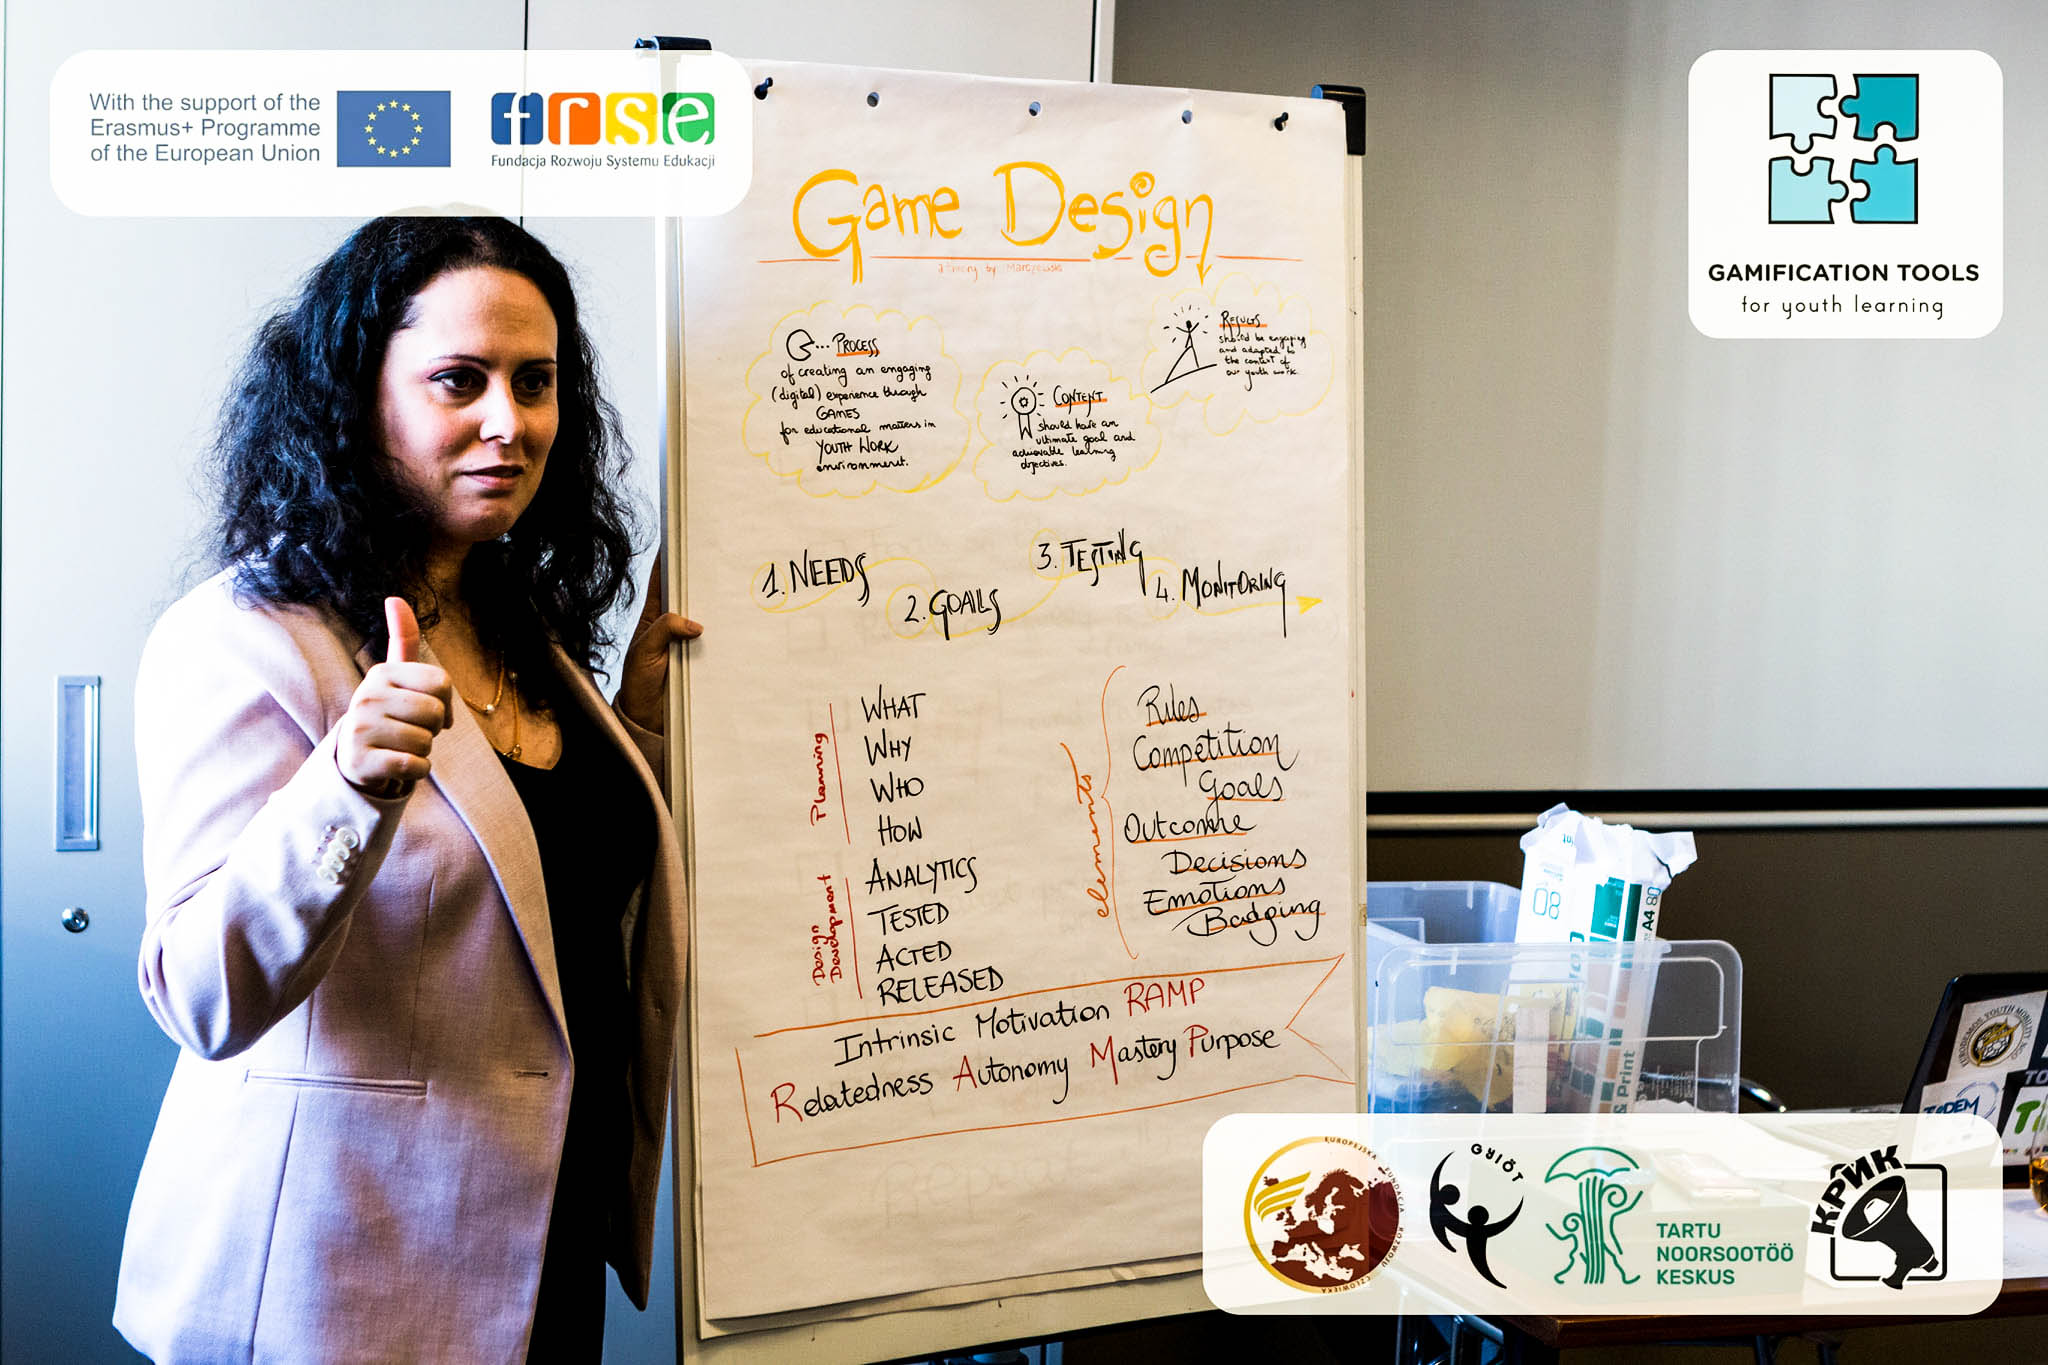 With the support of the
Erasmus+ Programme
of the European Union
frse
Fundacja Rozwoju Systemu Edukacji
GAMIFICATION TOOLS
for youth learning
Game Design
a theory by Marczewski
PROCESS
of creating an engaging
(digital) experience through
GAMES
for educational matters in
YOUTH WORK
environment.
CONTENT
should have an
ultimate goal and
achievable learning
objectives.
RESULTS
should be engaging
and adapted to
the context of
our youth work.
1. NEEDS
2. GOALS
3. TESTING
4. MONITORING
Planning
WHAT
WHY
WHO
HOW
Design
Development
ANALYTICS
TESTED
ACTED
RELEASED
elements
Rules
Competition
Goals
Outcome
Decisions
Emotions
Badging
Intrinsic Motivation RAMP
Relatedness Autonomy Mastery Purpose
80
A4 80
& Print
YOUTH MOBILITY NGO
EUROPEJSKA FUNDACJA ROZWOJU CZŁOWIEKA
GRIOT
TARTU
NOORSOOTÖÖ
KESKUS
КРИК